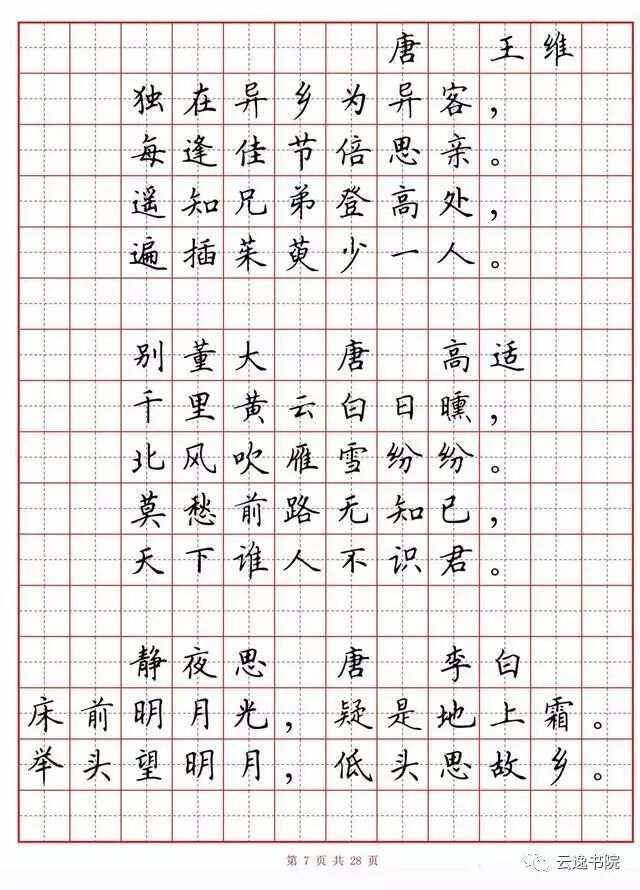 唐 王维
独在异乡为异客，
每逢佳节倍思亲。
遥知兄弟登高处，
遍插茱萸少一人。
别董大 唐 高适
千里黄云白日曛，
北风吹雁雪纷纷。
莫愁前路无知已，
天下谁人不识君。
静夜思 唐 李白
床前明月光，疑是地上霜。
举头望明月，低头思故乡。
第 7 页 共 28 页
云逸书院